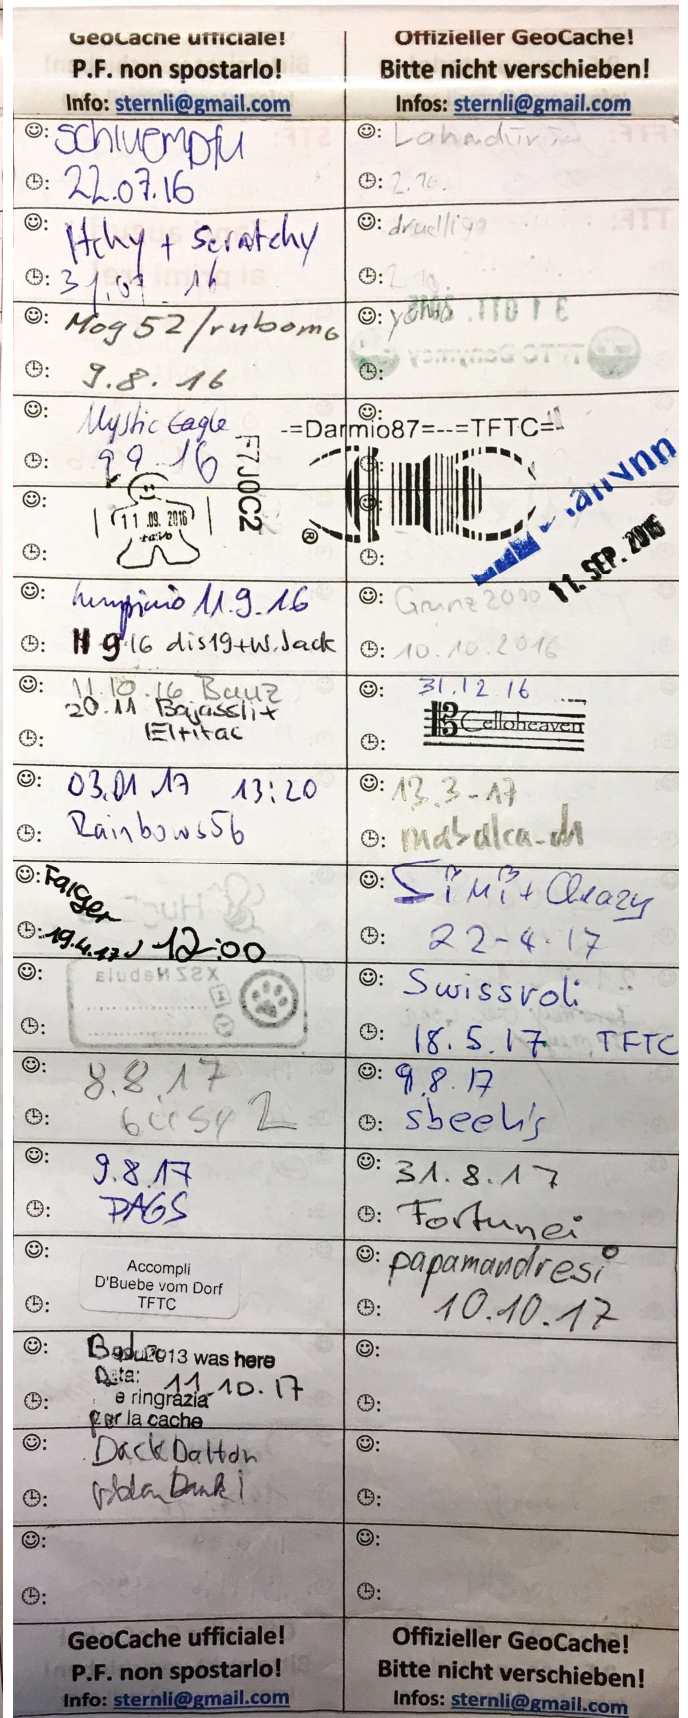 GeoCache ufficiale!
P.F. non spostarlo!
Info: sternli@gmail.com
schluempfu
22.07.16
Itchy + Scratchy
31.07.16
Mog52/rubomo
9.8.16
Mystic Eagle
9 9 16
F7J0C2
11 .09. 2016
11.9.16
11 9 16 dis19+W.Jack
11.10.16 Bauz
20.11 Bajassli+
Eltitac
03.01.17 13:20
Rainbows56
Falger
19.4.17 12:00
XSZ Nebula
8.8.17
9.8.17
PAGS
Accompli
D'Buebe vom Dorf
TFTC
2013 was here
Data: 11.10.17
e ringrazia
per la cache
Dack Dalton
GeoCache ufficiale!
P.F. non spostarlo!
Info: sternli@gmail.com
Offizieller GeoCache!
Bitte nicht verschieben!
Infos: sternli@gmail.com
-=Darmio87=--=TFTC=-
11. SEP. 2016
Grunz2000
10.10.2016
31.12.16
Celloheaven
13.3-17
mabalca-ch
SiMi + Cleazy
22-4-17
Swissroli
18.5.17 TFTC
9.8.17
sbeeh's
31.8.17
Fortunei
papamandresi
10.10.17
Offizieller GeoCache!
Bitte nicht verschieben!
Infos: sternli@gmail.com